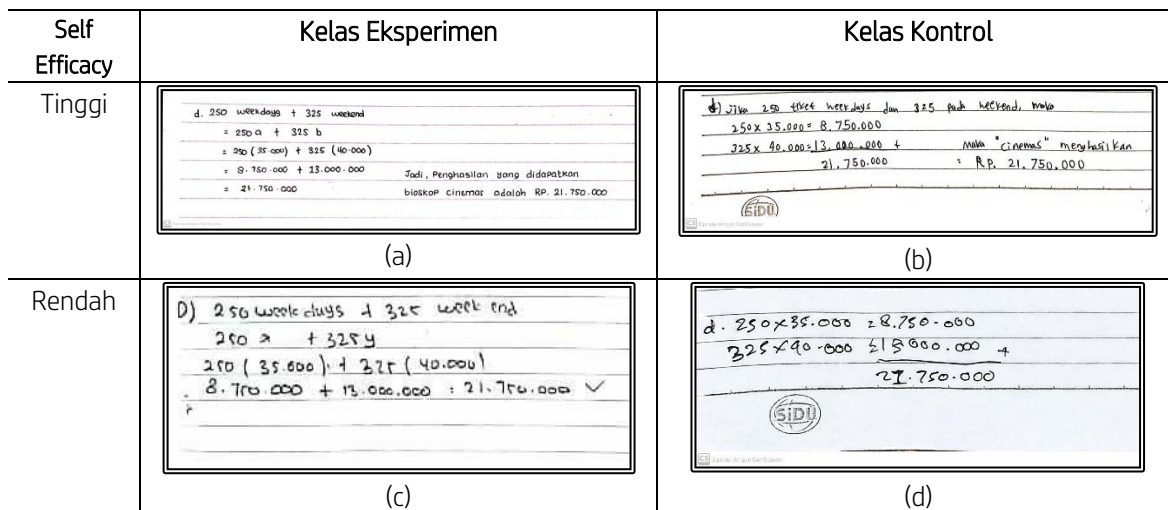 Self Efficacy
Kelas Eksperimen
Kelas Kontrol
Tinggi
d. 250 weekdays + 325 weekend
= 250 a + 325 b
= 250 (35.000) + 325 (40.000)
= 8.750.000 + 13.000.000
= 21.750.000
Jadi, Penghasilan yang didapatkan
bioskop cinemas adalah RP. 21.750.000
(a)
d) Jika 250 tiket weekdays dan 325 pada weekend, maka
250 x 35.000 = 8.750.000
325 x 40.000 = 13.000.000 +
21.750.000
Maka "Cinemas" menghasilkan
= Rp. 21.750.000
SiDU
(b)
Rendah
D) 250 weekdays + 325 week end
250 x + 325 y
250 (35.000) + 325 (40.000)
8.750.000 + 13.000.000 = 21.750.000 ✓
(c)
d. 250 x 35.000 = 8.750.000
325 x 40.000 = 13.000.000 +
21.750.000
SiDU
CS
(d)